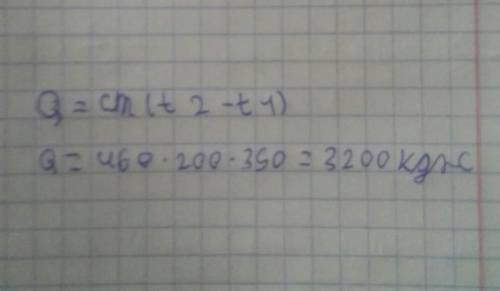 Q = cm (t 2 - t 1)
Q = 460 · 200 · 350 = 3200 кдж